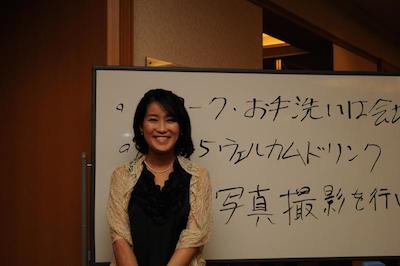 ーク・お手洗いは会
5 ウェルカムドリンク
写真撮影を行い